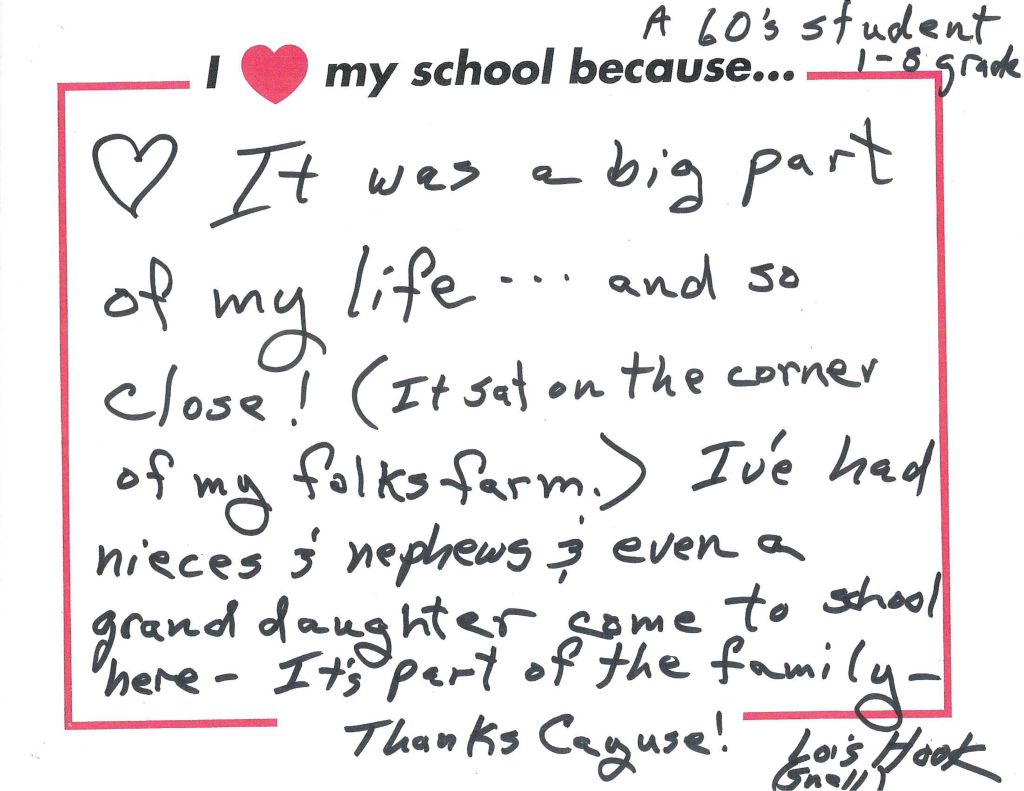 A 60's student
1-8 grade
I ♥ my school because...
♡ It was a big part
of my life ... and so
close! (It sat on the corner
of my folks farm.) I've had
nieces & nephews & even a
granddaughter come to school
here - It's part of the family -
Thanks Cayuse!
Lois Hook
(Snell)